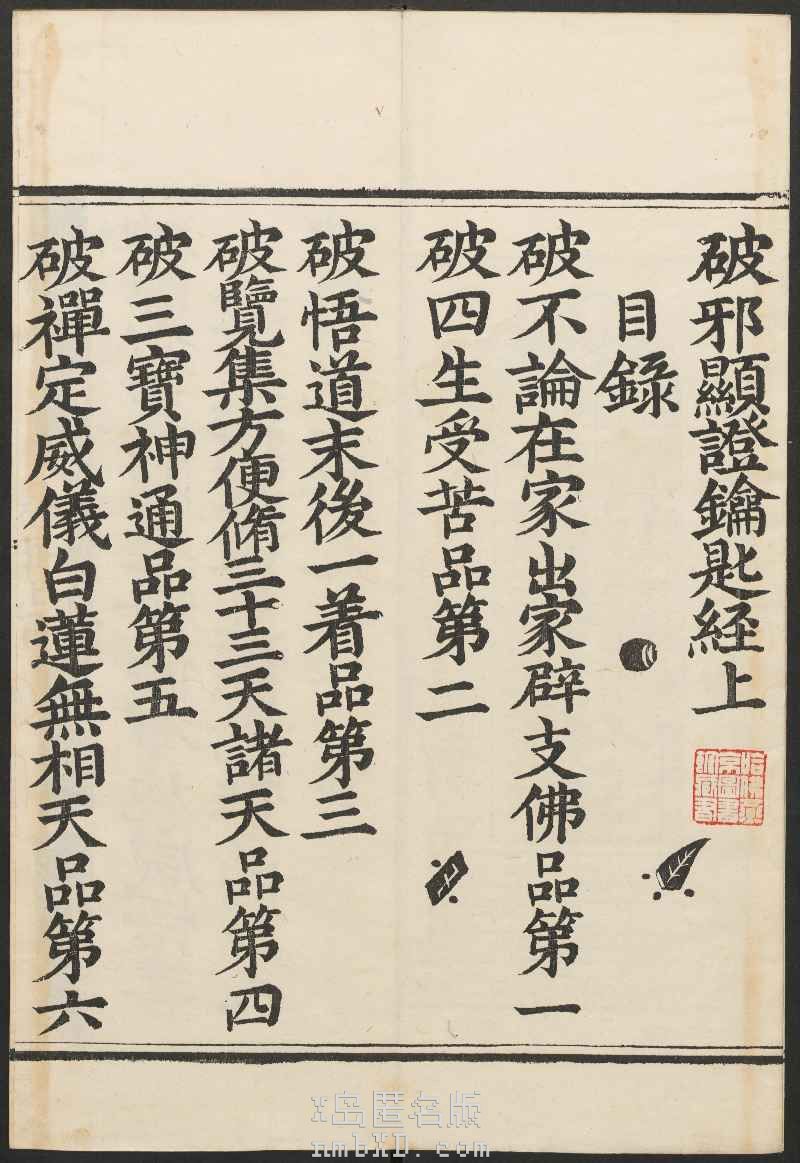 破邪顯證鑰匙經上
目錄
破不論在家出家辟支佛品第一
破四生受苦品第二
破悟道末後一着品第三
破覽集方便脩三十三天諸天品第四
破三寶神通品第五
破禪定威儀白蓮無相天品第六
X岛匿名版
nmbXD.com